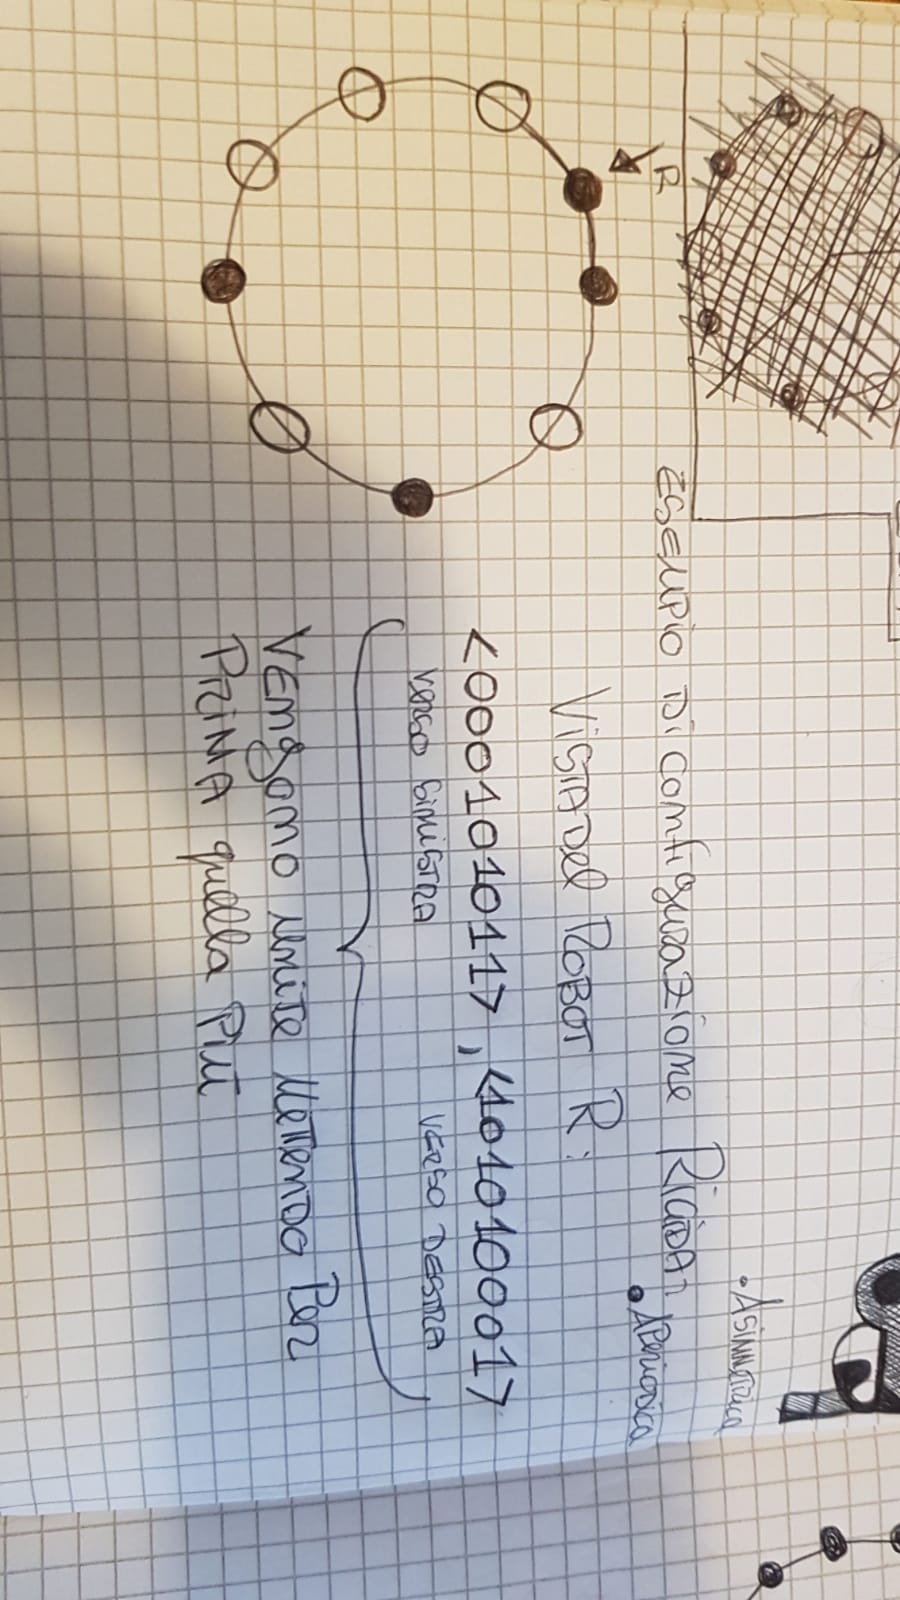 R
ESEMPIO Di Configurazione RIGIDA:
• ASIMMETRICA
• APERIODICA
VISTA Del ROBOT R:
<000101011>, <101010001>
VERSO SINISTRA VERSO DESTRA
VENgono unite METTENDO PER
PRIMA quella PIÙ